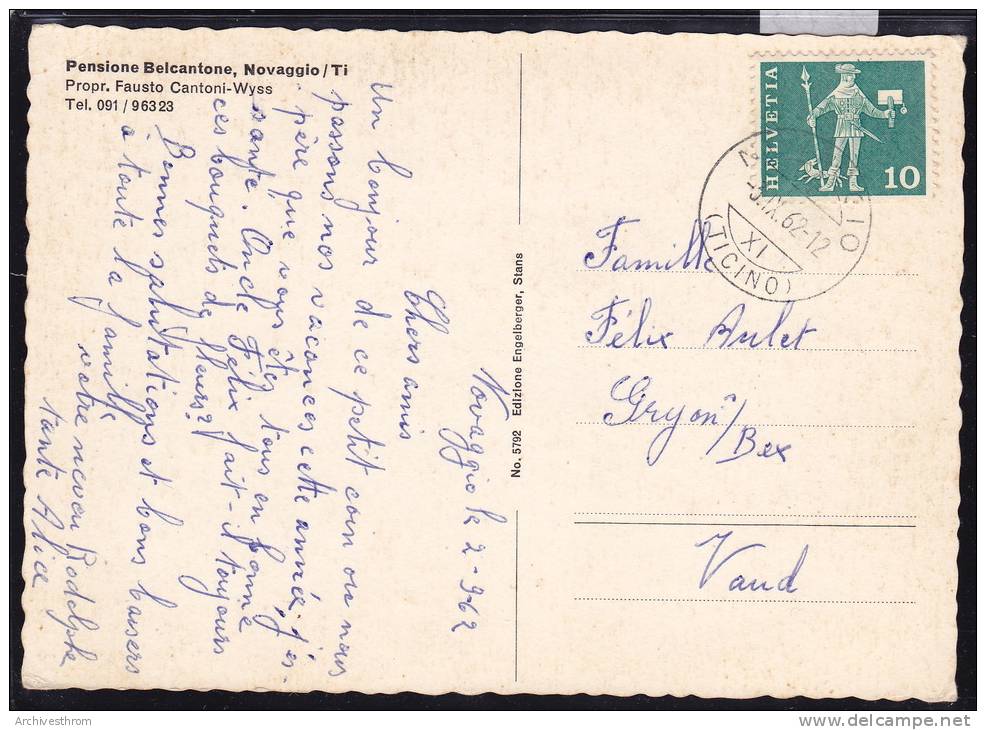 Pensione Belcantone, Novaggio/Ti
Propr. Fausto Cantoni-Wyss
Tel. 091/96323
Novaggio le 2-9-62
Chers amis
Un bonjour de ce petit coin ou nous
passons nos vacances cette année, j'es-
père que vous êtes tous en bonne
santé. Oncle Félix fait-il toujours
ces bouquets de fleurs?
Bonnes salutations et bons baisers
à toute la famille
votre neveu Rodolphe
tante Alice
No. 5792 Edizione Engelberger, Stans
HELVETIA
10
-3.IX.62-12
XI
(TICINO)
Famille
Félix Aulet
Gryon s/
Bex
Vaud
Archivesthrom
www.delcampe.net